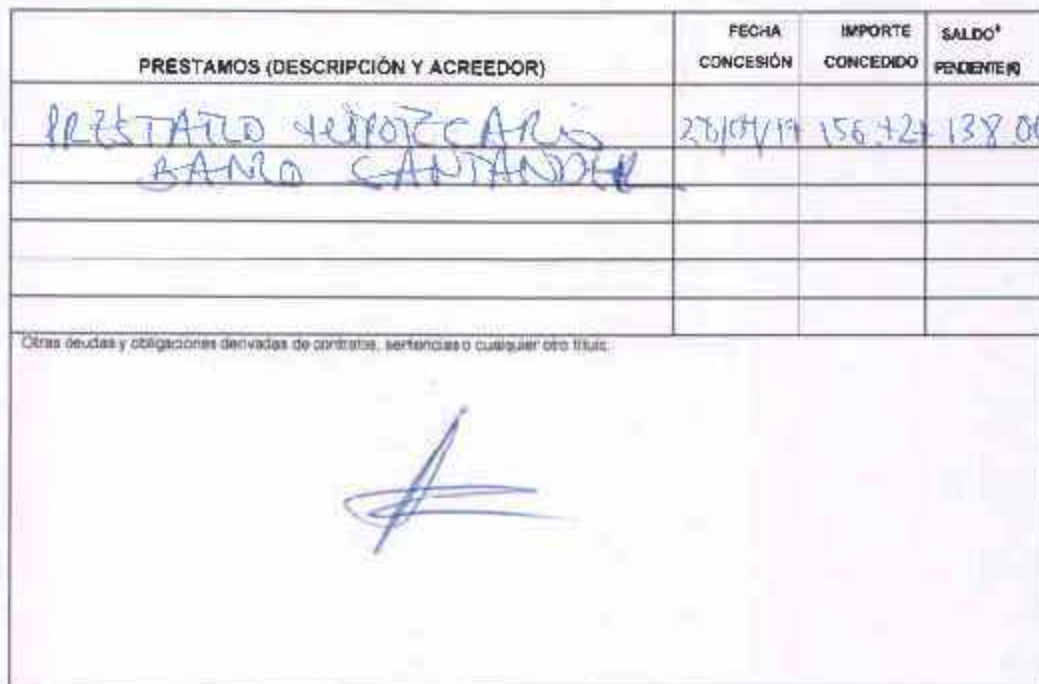 PRESTAMOS (DESCRIPCIÓN Y ACREEDOR) FECHA CONCESIÓN IMPORTE CONCEDIDO SALDO PENDIENTE
PRÉSTAMO HIPOTECARIO 156.
BANCO SANTANDER
Otras deudas y obligaciones derivadas de contratos, sentencias o cualquier otro título.